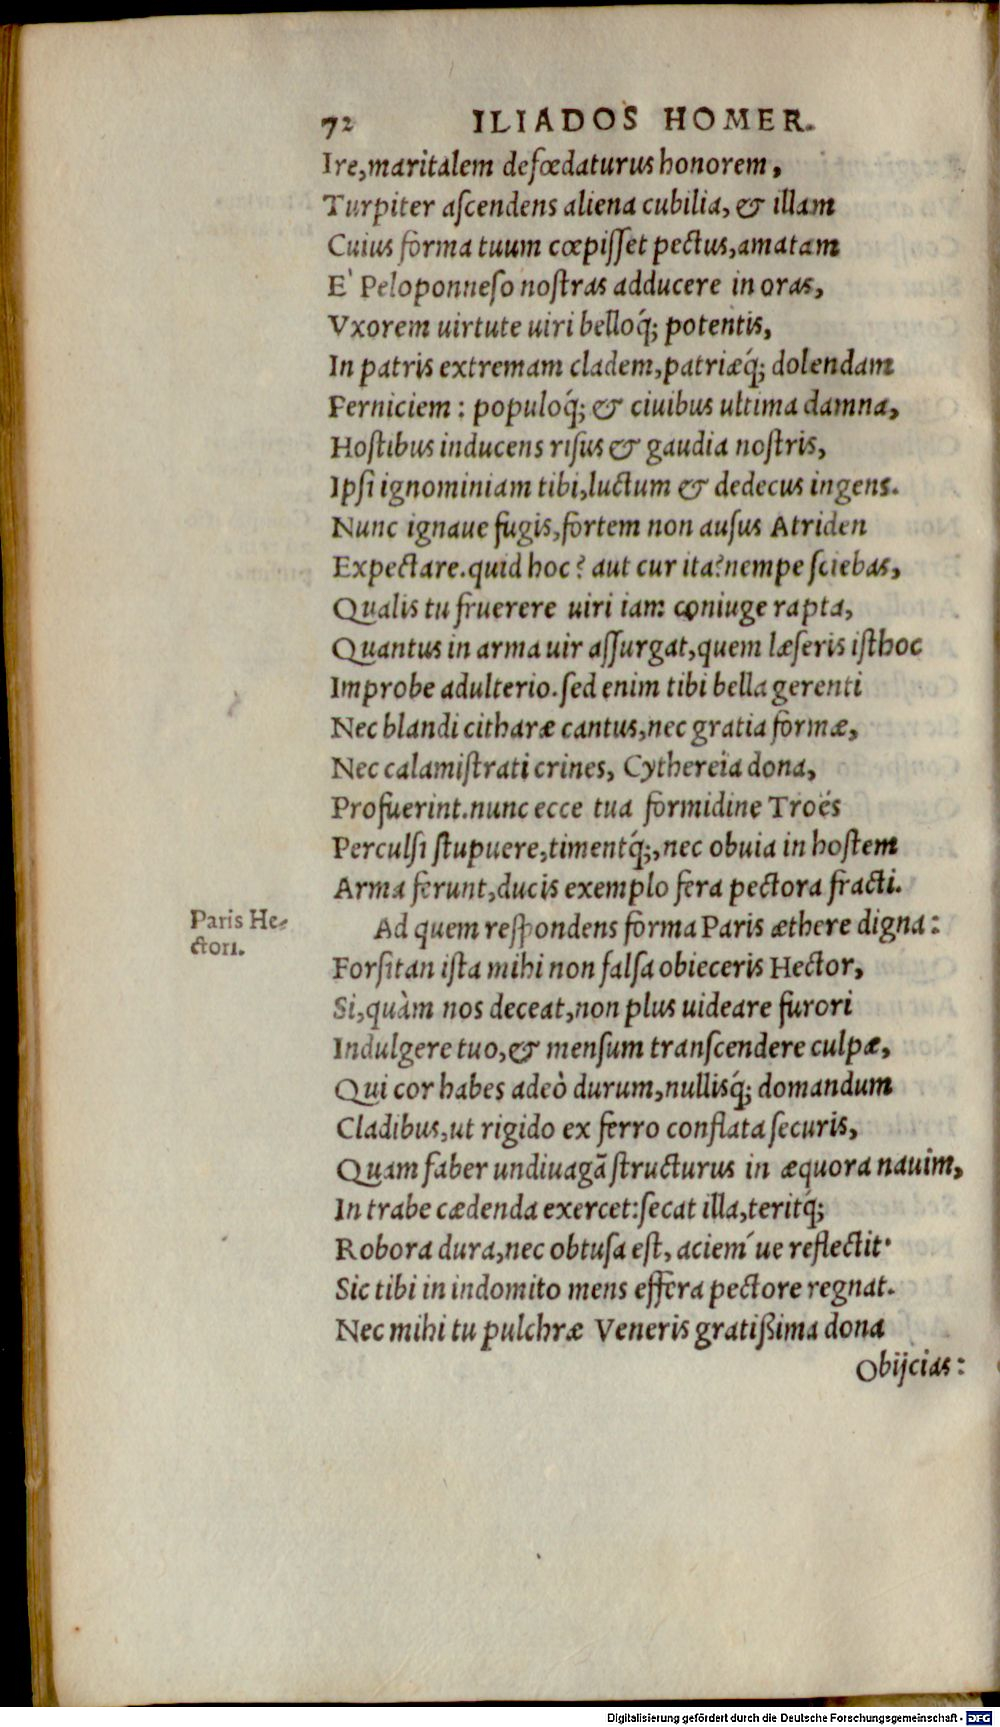 72 ILIADOS HOMER.
Ire,maritalem defœdaturus honorem,
Turpiter ascendens aliena cubilia, & illam
Cuius forma tuum cœpisset pectus,amatam
E' Peloponneso nostras adducere in oras,
Vxorem uirtute uiri belloq́; potentis,
In patris extremam cladem,patriæq́; dolendam
Perniciem: populoq́; & ciuibus ultima damna,
Hostibus inducens risus & gaudia nostris,
Ipsi ignominiam tibi,luctum & dedecus ingens.
Nunc ignaue fugis,fortem non ausus Atriden
Expectare.quid hoc? aut cur ita?nempe sciebas,
Qualis tu fruerere uiri iam coniuge rapta,
Quantus in arma uir assurgat,quem læseris isthoc
Improbe adulterio.sed enim tibi bella gerenti
Nec blandi citharæ cantus,nec gratia formæ,
Nec calamistrati crines, Cythereïa dona,
Profuerint.nunc ecce tua formidine Troës
Perculsi stupuere,timentq́;,nec obuia in hostem
Arma ferunt,ducis exemplo fera pectora fracti.
Paris He-
ctori.
Ad quem respondens forma Paris æthere digna:
Forsitan ista mihi non falsa obieceris Hector,
Si,quàm nos deceat,non plus uideare furori
Indulgere tuo,& mensum transcendere culpæ,
Qui cor habes adeò durum,nullisq́; domandum
Cladibus,ut rigido ex ferro conflata securis,
Quam faber undiuagā structurus in æquora nauim,
In trabe cædenda exercet:secat illa,teritq́;
Robora dura,nec obtusa est, aciem´ue reflectit.
Sic tibi in indomito mens effera pectore regnat.
Nec mihi tu pulchræ Veneris gratißima dona
Obijcias:
Digitalisierung gefördert durch die Deutsche Forschungsgemeinschaft - DFG